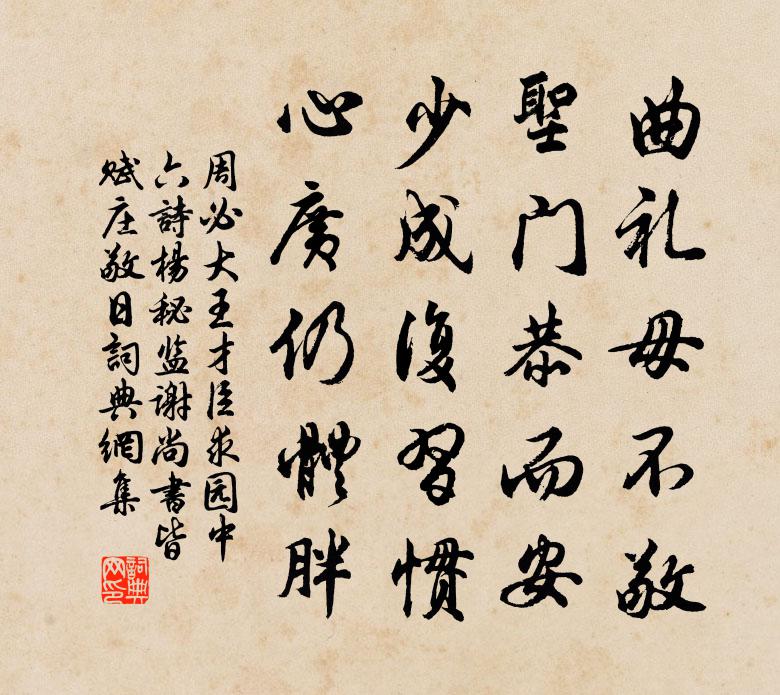 曲礼毋不敬
聖门恭而安
少成復習慣
心廣仍體胖
周必大王才臣求园中
六詩楊秘监谢尚書皆
赋庄敬日詞典網集
詞典网印